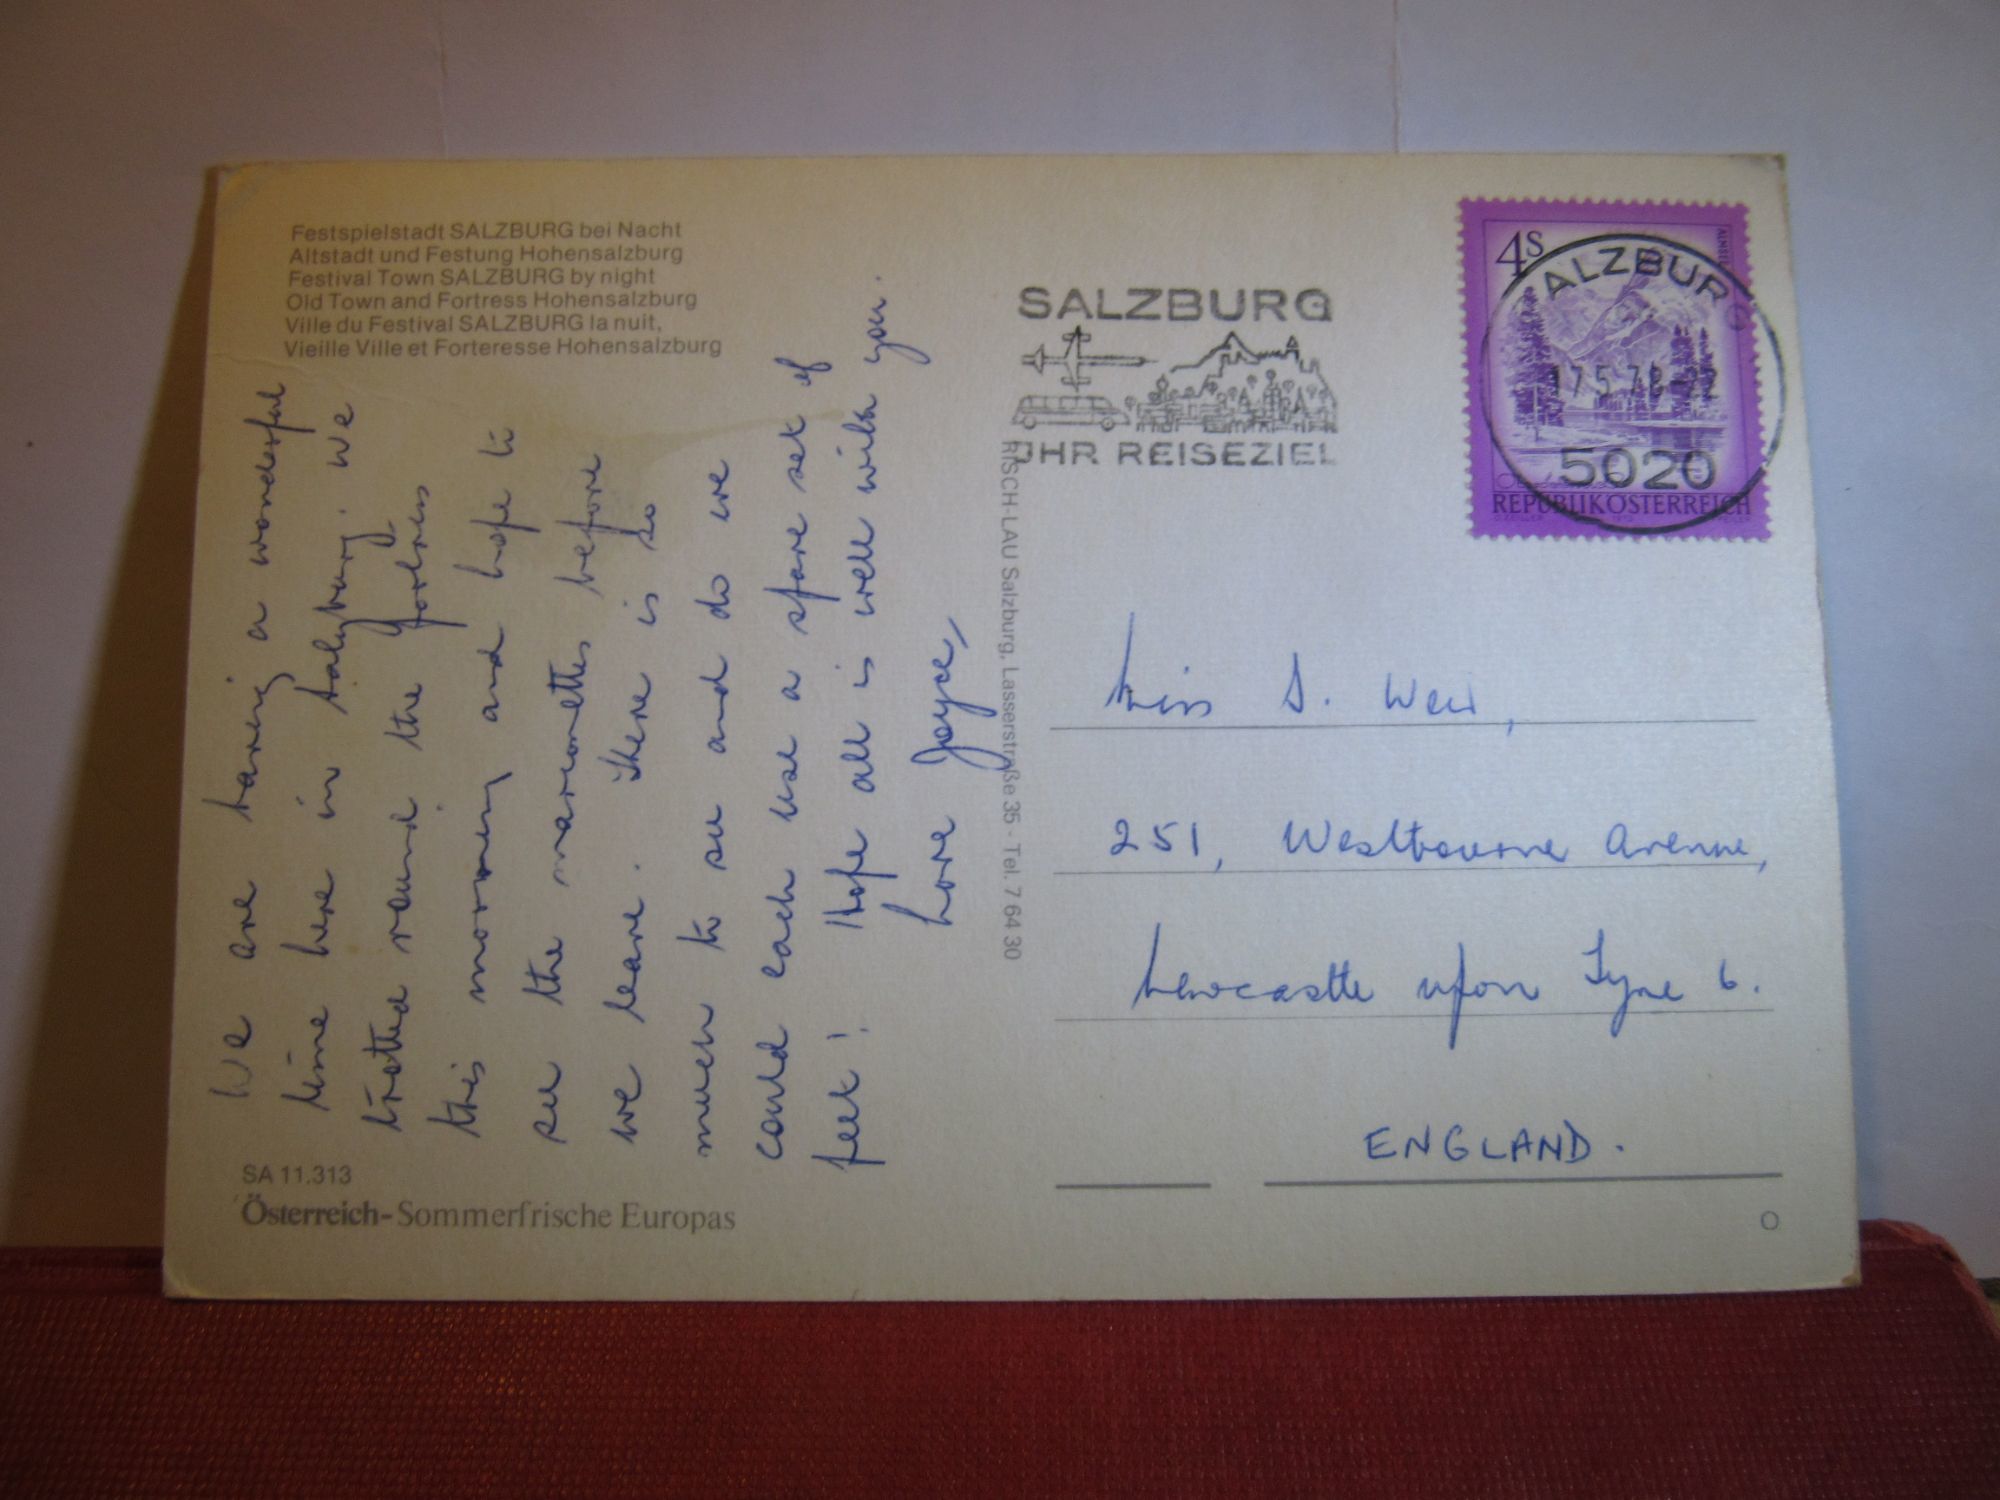 Festspielstadt SALZBURG bei Nacht
Altstadt und Festung Hohensalzburg
Festival Town SALZBURG by night
Old Town and Fortress Hohensalzburg
Ville du Festival SALZBURG la nuit,
Vieille Ville et Forteresse Hohensalzburg
We are having a wonderful
time here in Salzburg. We
trotted round the fortress
this morning and hope to
see the marionettes before
we leave. There is so
much to see and do we
could each use a spare set of
feet! Hope all is well with you.
Love Joyce,
SA 11.313
Österreich-Sommerfrische Europas
RISCH-LAU Salzburg, Lasserstraße 35 - Tel. 7 64 30
SALZBURG
IHR REISEZIEL
4S
SALZBURG
17.5.78
5020
REPUBLIK ÖSTERREICH
Miss D. Weir,
251, Westbourne Avenue,
Newcastle upon Tyne 6.
ENGLAND.
O